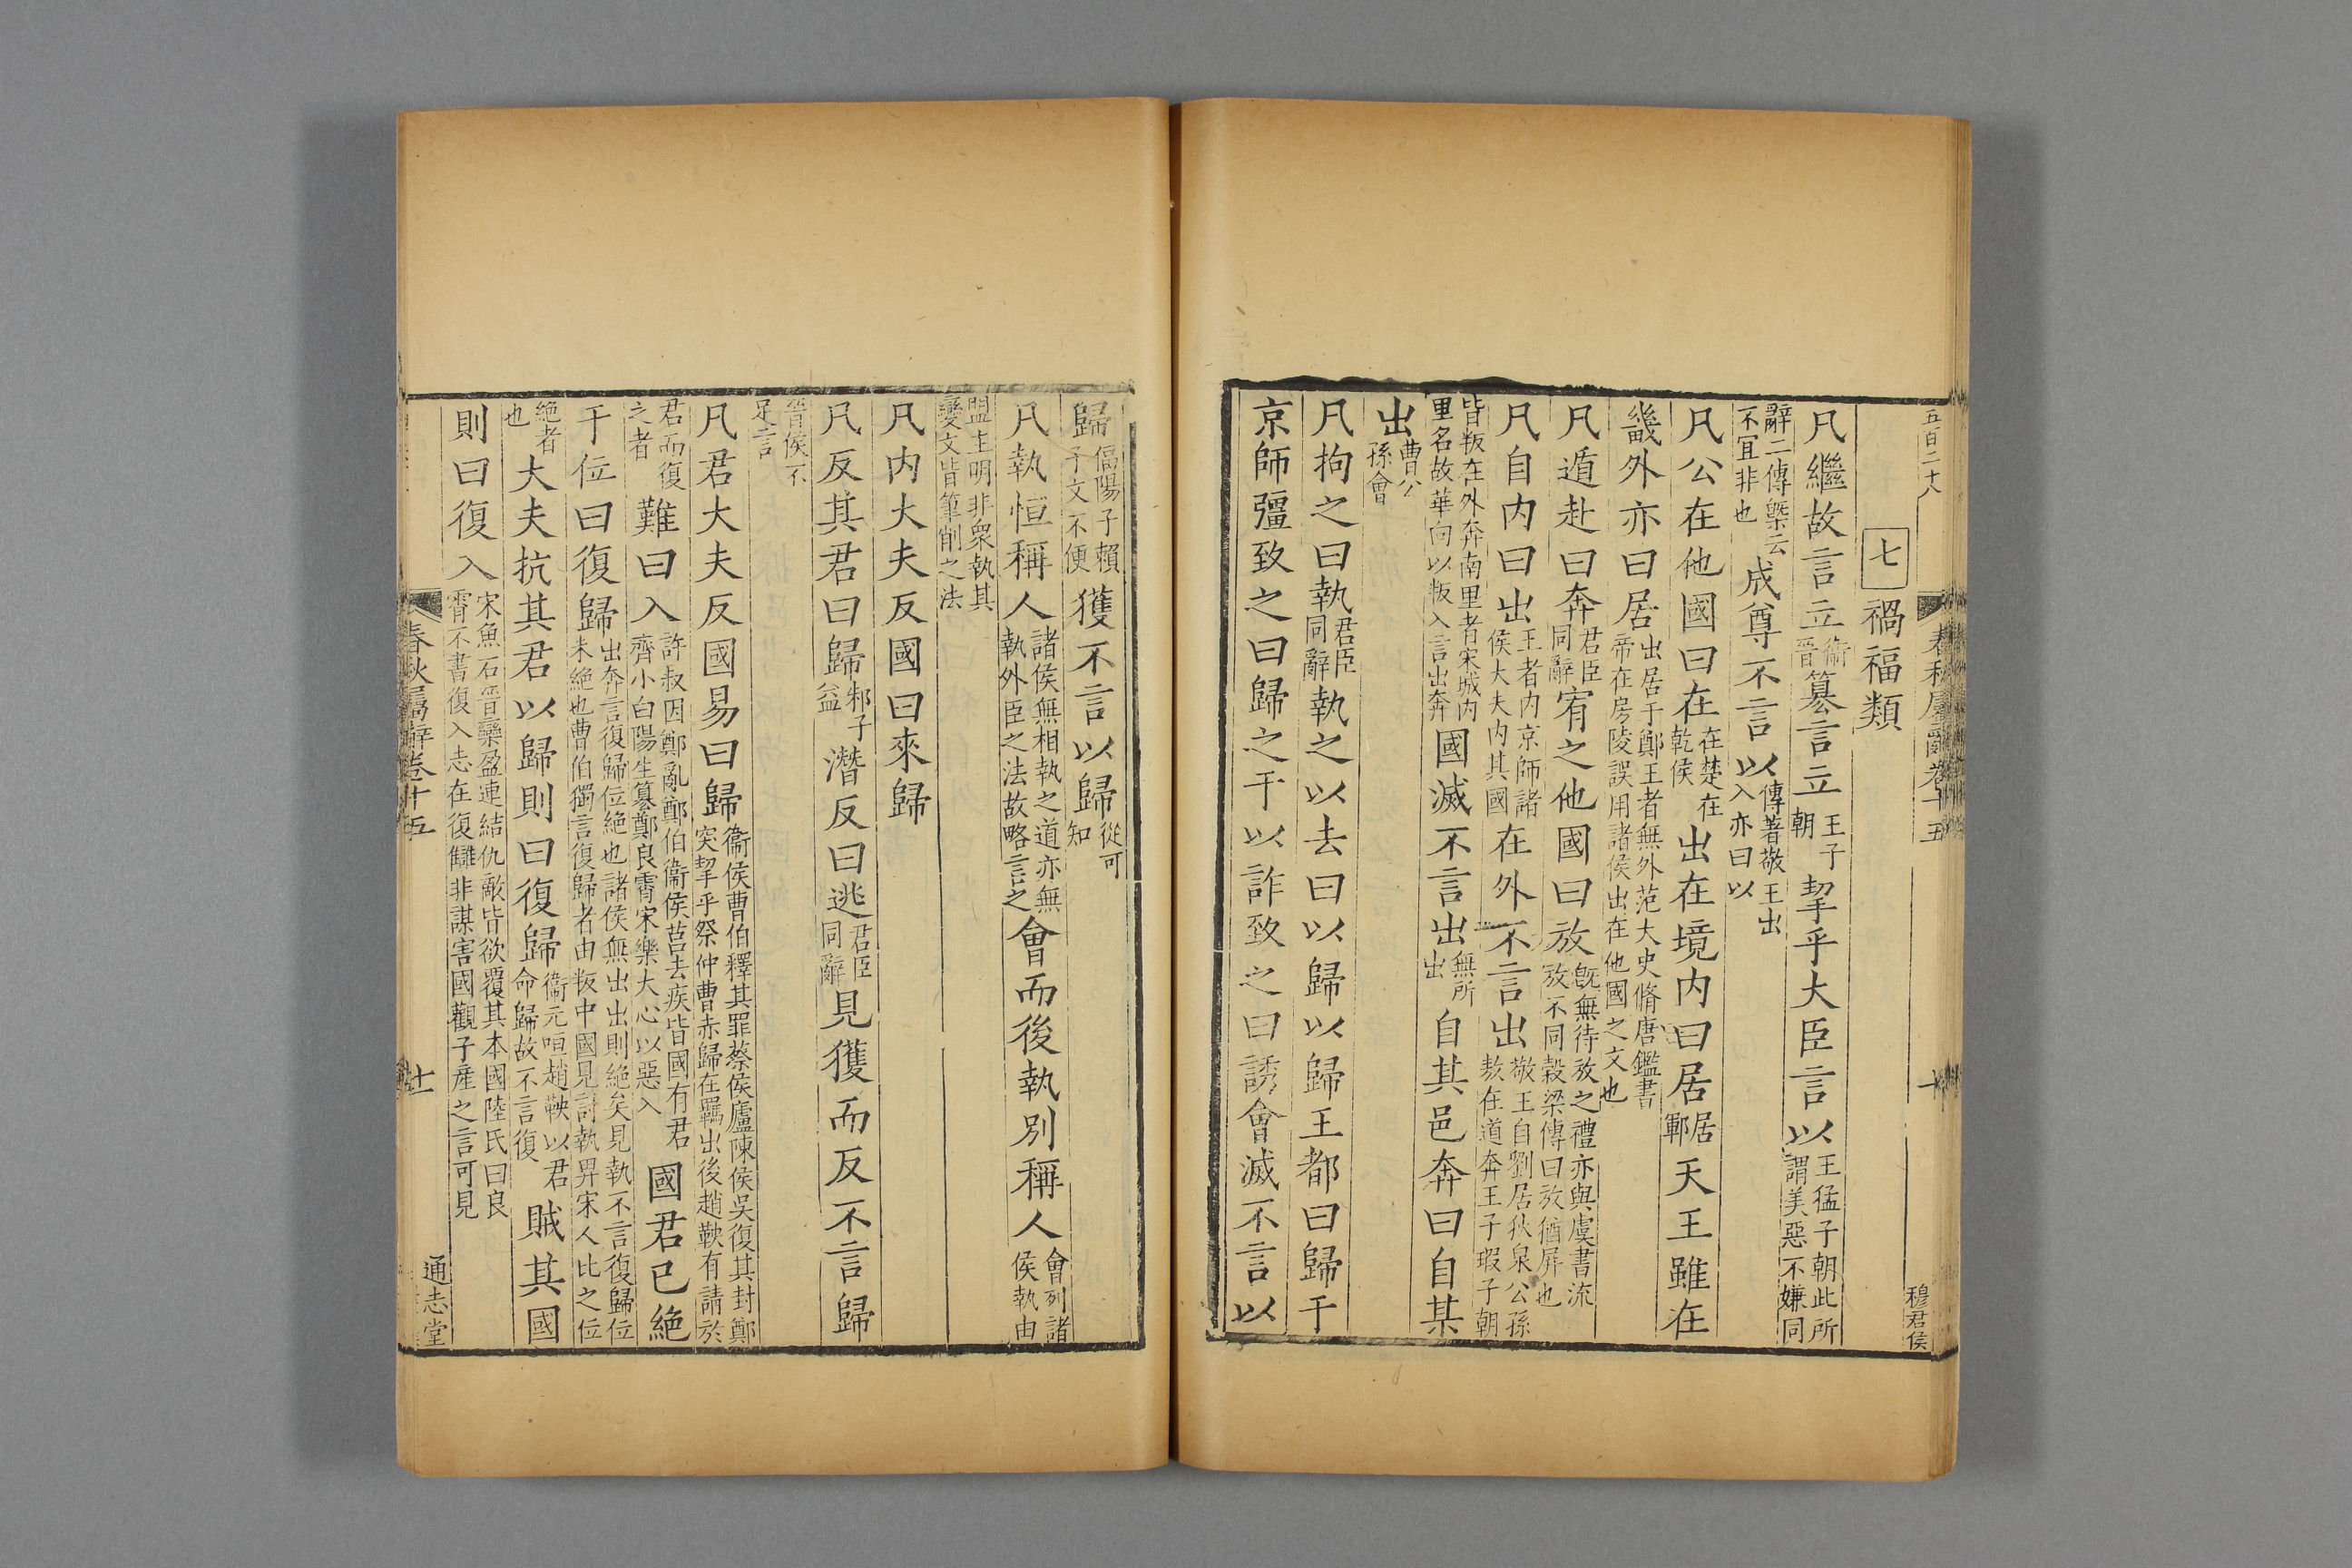 五百二十八
春秋屬辭卷十五
十
穆君侯
七 禍福類
凡繼故言立衞晉篡言立王子朝挈乎大臣言以王猛子朝此所謂美惡不嫌同
辭二傳槩云不冝非也成尊不言以傳著敬王出入亦曰以
凡公在他國曰在在楚在乾侯出在境内曰居居鄆天王雖在
畿外亦曰居出居于鄭王者無外范大史脩唐鑑書帝在房陵誤用諸侯出在他國之文也
凡遁赴曰奔君臣同辭宥之他國曰放旣無待放之禮亦與虞書流放不同穀梁傳曰放猶屏也
凡自内曰出王者内京師諸侯大夫内其國在外不言出敬王自劉居狄泉公孫敖在道奔王子瑕子朝
皆叛在外奔南里者宋城内里名故華向以叛入言出奔國滅不言出無所出自其邑奔曰自某
出曹公孫會
凡拘之曰執君臣同辭執之以去曰以歸以歸王都曰歸于
京師彊致之曰歸之于以詐致之曰誘會滅不言以
歸偪陽子賴子文不便獲不言以歸從可知
凡執恒稱人諸侯無相執之道亦無執外臣之法故略言之會而後執別稱人會列諸侯執由
盟主明非衆執其變文皆筆削之法
凡内大夫反國曰來歸
凡反其君曰歸邾子益潛反曰逃君臣同辭見獲而反不言歸
晉侯不足言
凡君大夫反國易曰歸衞侯曹伯釋其罪蔡侯廬陳侯吳復其封鄭突挈乎祭仲曹赤歸在羈出後趙鞅有請於
君而復之者難曰入許叔因鄭亂鄭伯衞侯莒去疾皆國有君齊小白陽生篡鄭良霄宋樂大心以惡入國君已絶
于位曰復歸出奔言復歸位絶也諸侯無出出則絶矣見執不言復歸位未絶也曹伯獨言復歸者由叛中國見討執畀宋人比之位
絶者也大夫抗其君以歸則曰復歸衞元咺趙鞅以君命歸故不言復賊其國
則曰復入宋魚石晉欒盈連結仇敵皆欲覆其本國陸氏曰良霄不書復入志在復讎非謀害國觀子產之言可見
春秋屬辭卷十五
十一
通志堂